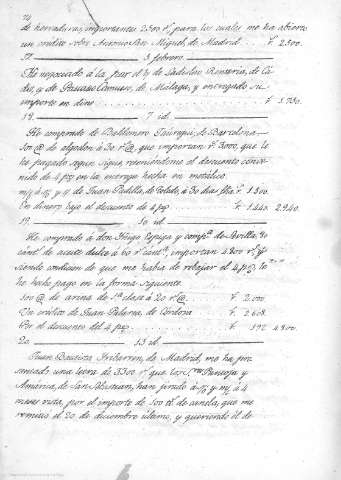 de herraduras, importantes 2500 rs. para los cuales me ha abierto
un crédito sobre Antonio San Miguel, de Madrid r. 2500.
17 3 febrero
He negociado á la par el de Ladislao Rentería, de Cá-
diz, y de Pascasio de Málaga, y entregado su
importe en dino r.
18 7 id.
He comprado de Baldomero de Barcelona
100 @ de algodon á 30 rs. @, que importan rs. 3000, que le
he pagado segun sigue, reteniéndome el descuento conve-
nido de 4 p% en la entrega hecha en metálico.
m/ á y de Juan Padilla, de Toledo, á 30 dias fha. r. 1500.
En dinero bajo el descuento de 4 p% r. 1440. 2940.
19 10 id.
He comprado á don Iñigo Espiga y compª. de Sevilla, 80
cánts. de aceite dulce á 60 rs. cánt., importan 4800 rs. y
siendo condicion de que me habia de rebajar el 4 p%, le
he hecho pago en la forma siguiente.
100 @ de arina de 1ª clase á 20 rs. @ r. 2000
Un crédito de Juan Palma, de Córdova r. 2608.
Por el descuento del 4 p% r. 192 4800.
20 13 id.
Juan Bautista Iribarren, de Madrid, me ha pre-
sentado una letra de 3300 rs. que los Sres. Pantoja y
América, de San Sebastian, han girado á y m/ á 4
meses vista, por el importe de 100 lb. de canela, que me
remitió el 20 de diciembre último, y queriendo él de